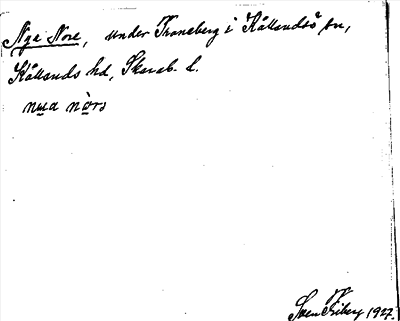 Nya Nore, under Traneberg i Kållandsö sn,
Kållands hd, Skarab. l.
nya nòrs
Sven Friberg 1927.